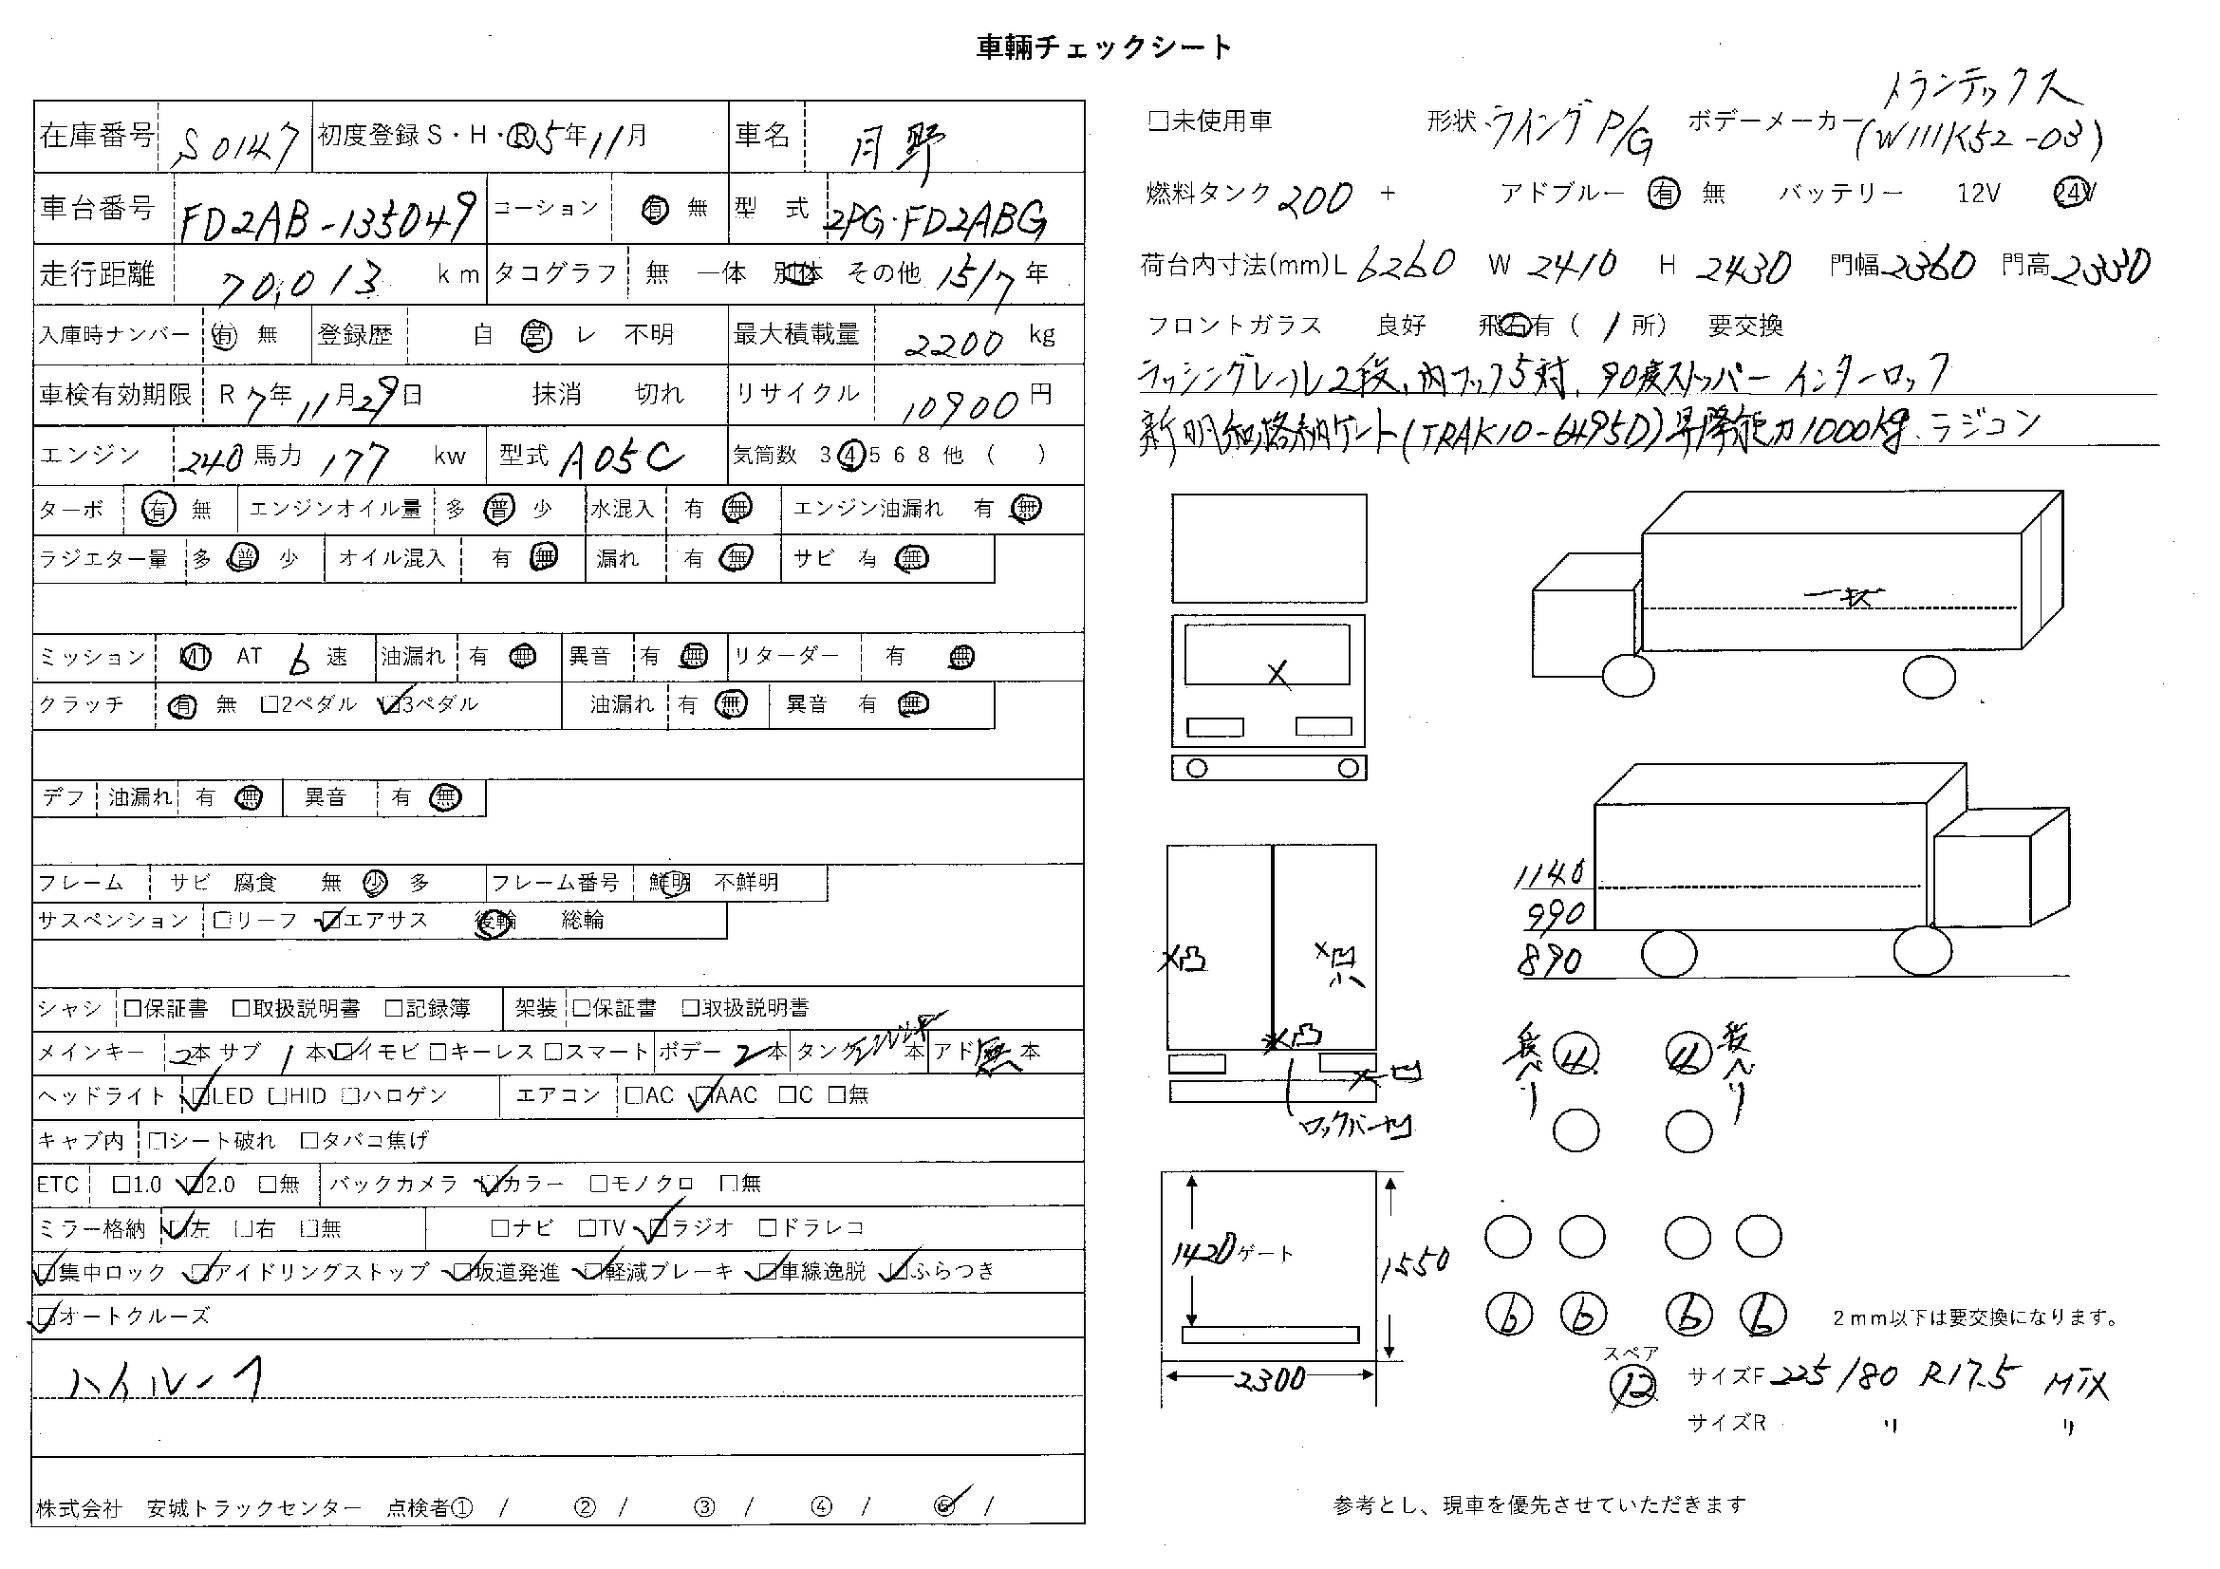 車輛チェックシート
在庫番号 S0147 初度登録 S・H・R 5年 11月 車名 日野
車台番号 FD2AB-135049 コーション 有 無 型式 2PG-FD2ABG
走行距離 70,013 km タコグラフ 無 一体 別体 その他 15/7年
入庫時ナンバー 有 無 登録歴 自 営 レ 不明 最大積載量 2200 kg
車検有効期限 R 7年 11月 29日 抹消 切れ リサイクル 10900 円
エンジン 240 馬力 177 kw 型式 A05C 気筒数 3 4 5 6 8 他 ( )
ターボ 有 無 エンジンオイル量 多 普 少 水混入 有 無 エンジン油漏れ 有 無
ラジエター量 多 普 少 オイル混入 有 無 漏れ 有 無 サビ 有 無
ミッション MT AT 6 速 油漏れ 有 無 異音 有 無 リターダー 有 無
クラッチ 有 無 □2ペダル ☑3ペダル 油漏れ 有 無 異音 有 無
デフ 油漏れ 有 無 異音 有 無
フレーム サビ 腐食 無 少 多 フレーム番号 鮮明 不鮮明
サスペンション □リーフ ☑エアサス 後輪 総輪
シャシ □保証書 □取扱説明書 □記録簿 架装 □保証書 □取扱説明書
メインキー 2本 サブ 1本 ☑イモビ □キーレス □スマート ボデー 2本 タンク 本 アド 無 本
ヘッドライト ☑LED □HID □ハロゲン エアコン □AC ☑AAC □C □無
キャブ内 □シート破れ □タバコ焦げ
ETC □1.0 ☑2.0 □無 バックカメラ ☑カラー □モノクロ □無
ミラー格納 ☑左 □右 □無 □ナビ □TV ☑ラジオ □ドラレコ
☑集中ロック ☑アイドリングストップ ☑坂道発進 ☑軽減ブレーキ ☑車線逸脱 ☑ふらつき
☑オートクルーズ
ハイルーフ
株式会社 安城トラックセンター 点検者① / ② / ③ / ④ / ⑤ /
□未使用車 形状 ウイング P/G ボデーメーカー トランテックス
(W111K52-03)
燃料タンク 200 + アドブルー 有 無 バッテリー 12V 24V
荷台内寸法(mm)L 6260 W 2410 H 2430 門幅 2360 門高 2330
フロントガラス 良好 飛石有 ( 1 所) 要交換
ラッシングレール2段、内フック5対、90度ストッパー インターロック
新明和格納ゲート(TRAK10-6495D)昇降能力1000kg、ラジコン
一枚
X
1140
990
890
X凸
X凹
小
X凸
X凹
ロックバー凹
段べり 4 4 段べり
1420 ゲート
1550
2300
6 6 6 6 2mm以下は要交換になります。
スペア
12 サイズF 225/80 R17.5 MIX
サイズR 〃 〃
参考とし、現車を優先させていただきます